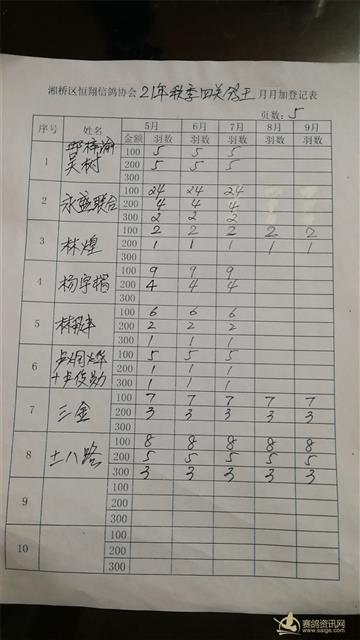 湘桥区恒翔信鸽协会21年秋季四关鸽王月月加登记表
页数：5
序号 姓名 5月 6月 7月 8月 9月
金额 羽数 羽数 羽数 羽数 羽数
1 吴树 100 5 5 5
200 5 5 5
300
2 永盛联合 100 24 24 24
200 4 4 4
300 2 2 2
3 林煌 100 2 2 2 2 2
200 1 1 1 1 1
300
4 杨宇 100 9 9 9
200 4 4 4
300
5 100 6 6 6
200 2 2 2
300 1 1 1
6 100 5 5 5
200 1 1 1
300 1 1 1
7 三金 100 7 7 7 7 7
200 3 3 3 3 3
300
8 土八路 100 8 8 8 8 8
200 5 5 5 5 5
300 3 3 3 3 3
9 100
200
300
10 100
200
300
赛鸽资讯网
www.saige.com